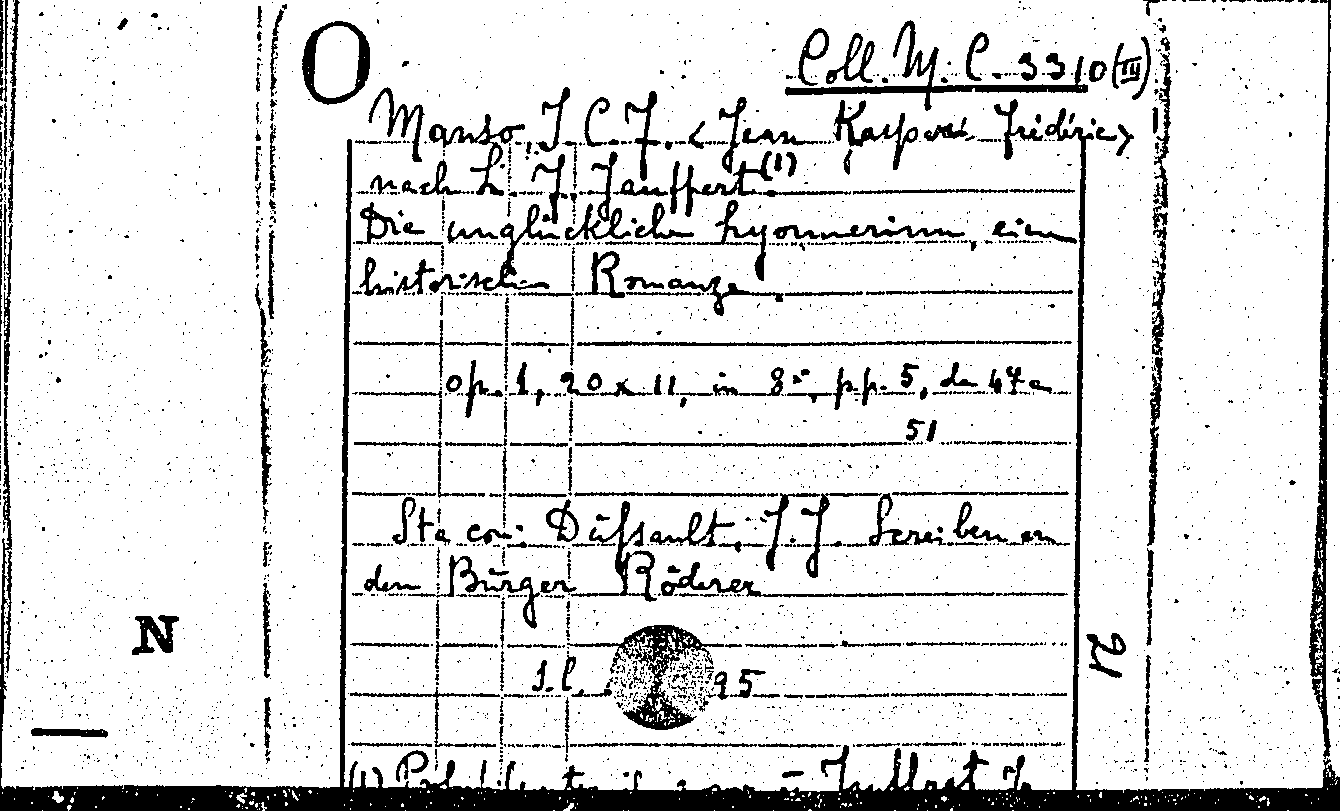 O
Coll. M. C. 3310 (III)
Manso, J. C. F. < Jean Kaspar Frédéric >
nach L. F. Jauffert (1).
Die unglücklichen Lyonnerinn, eine
historischen Romanze.
op. 1, 20 x 11, in 8º, pp. 5, da 47 a
51
Sta con: Düssault, J. J. Screiben an
den Bürger Röderer
N
21
S.l. 95
(1)